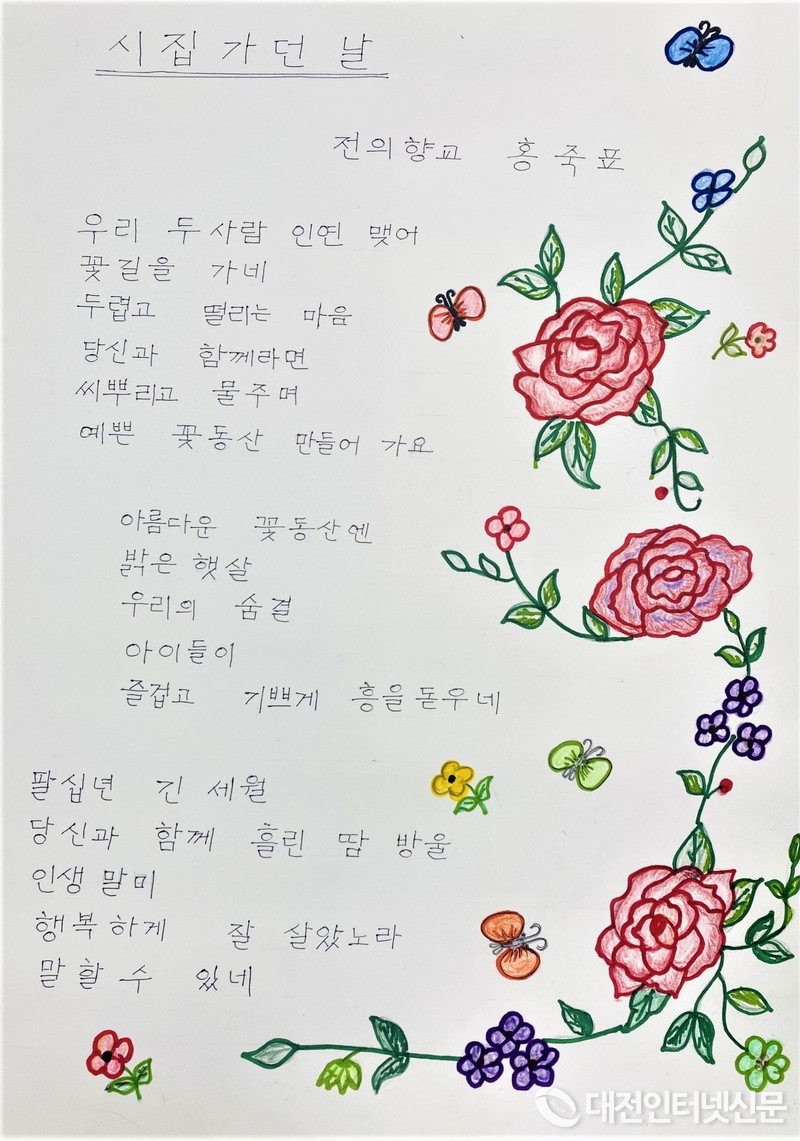 시집 가던 날
전의향교 홍죽표
우리 두 사람 인연 맺어
꽃길을 가네
두렵고 떨리는 마음
당신과 함께라면
씨뿌리고 물주며
예쁜 꽃동산 만들어 가요
아름다운 꽃동산엔
밝은 햇살
우리의 숨결
아이들이
즐겁고 기쁘게 흥을 돋우네
팔십년 긴 세월
당신과 함께 흘린 땀 방울
인생 말미
행복하게 잘 살았노라
말할 수 있네
대전인터넷신문